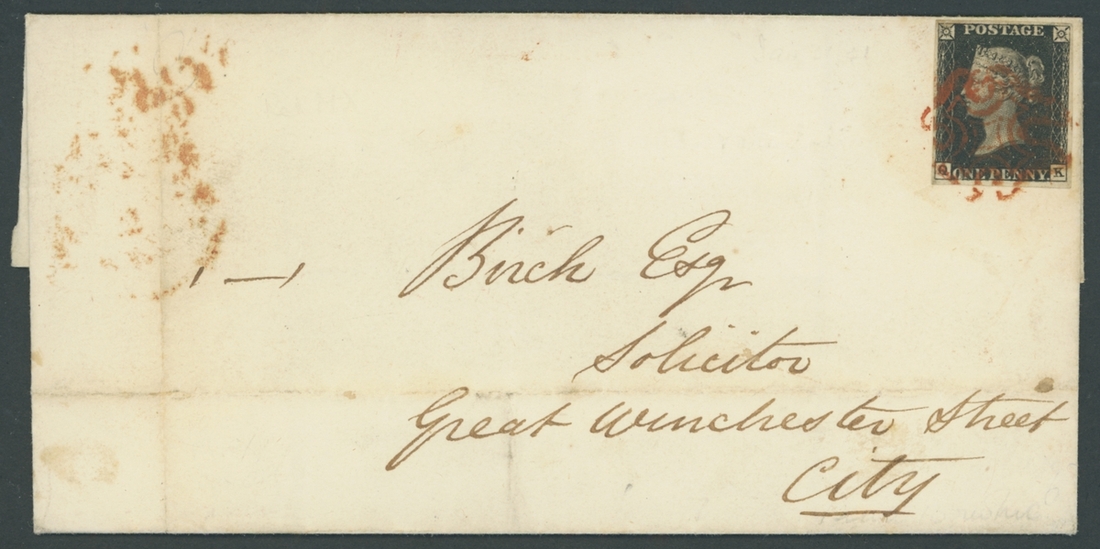 POSTAGE
Q ONE PENNY K
Birch Esqr
Solicitor
Great Winchester Street
City